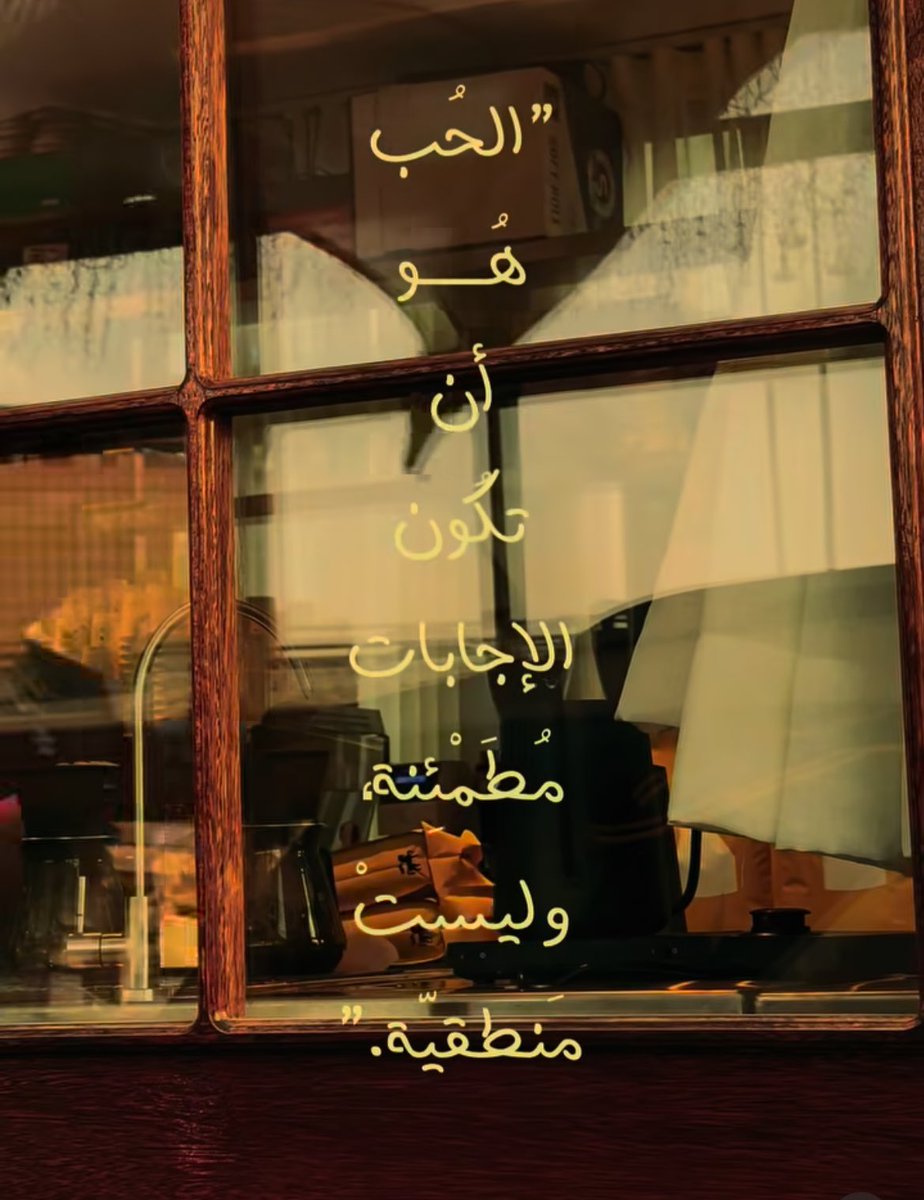 ”الحُب
هُــو
أن
تكُون
الإجابات
مُطَمْئنة،
وليستْ
مَنطقيّة.”